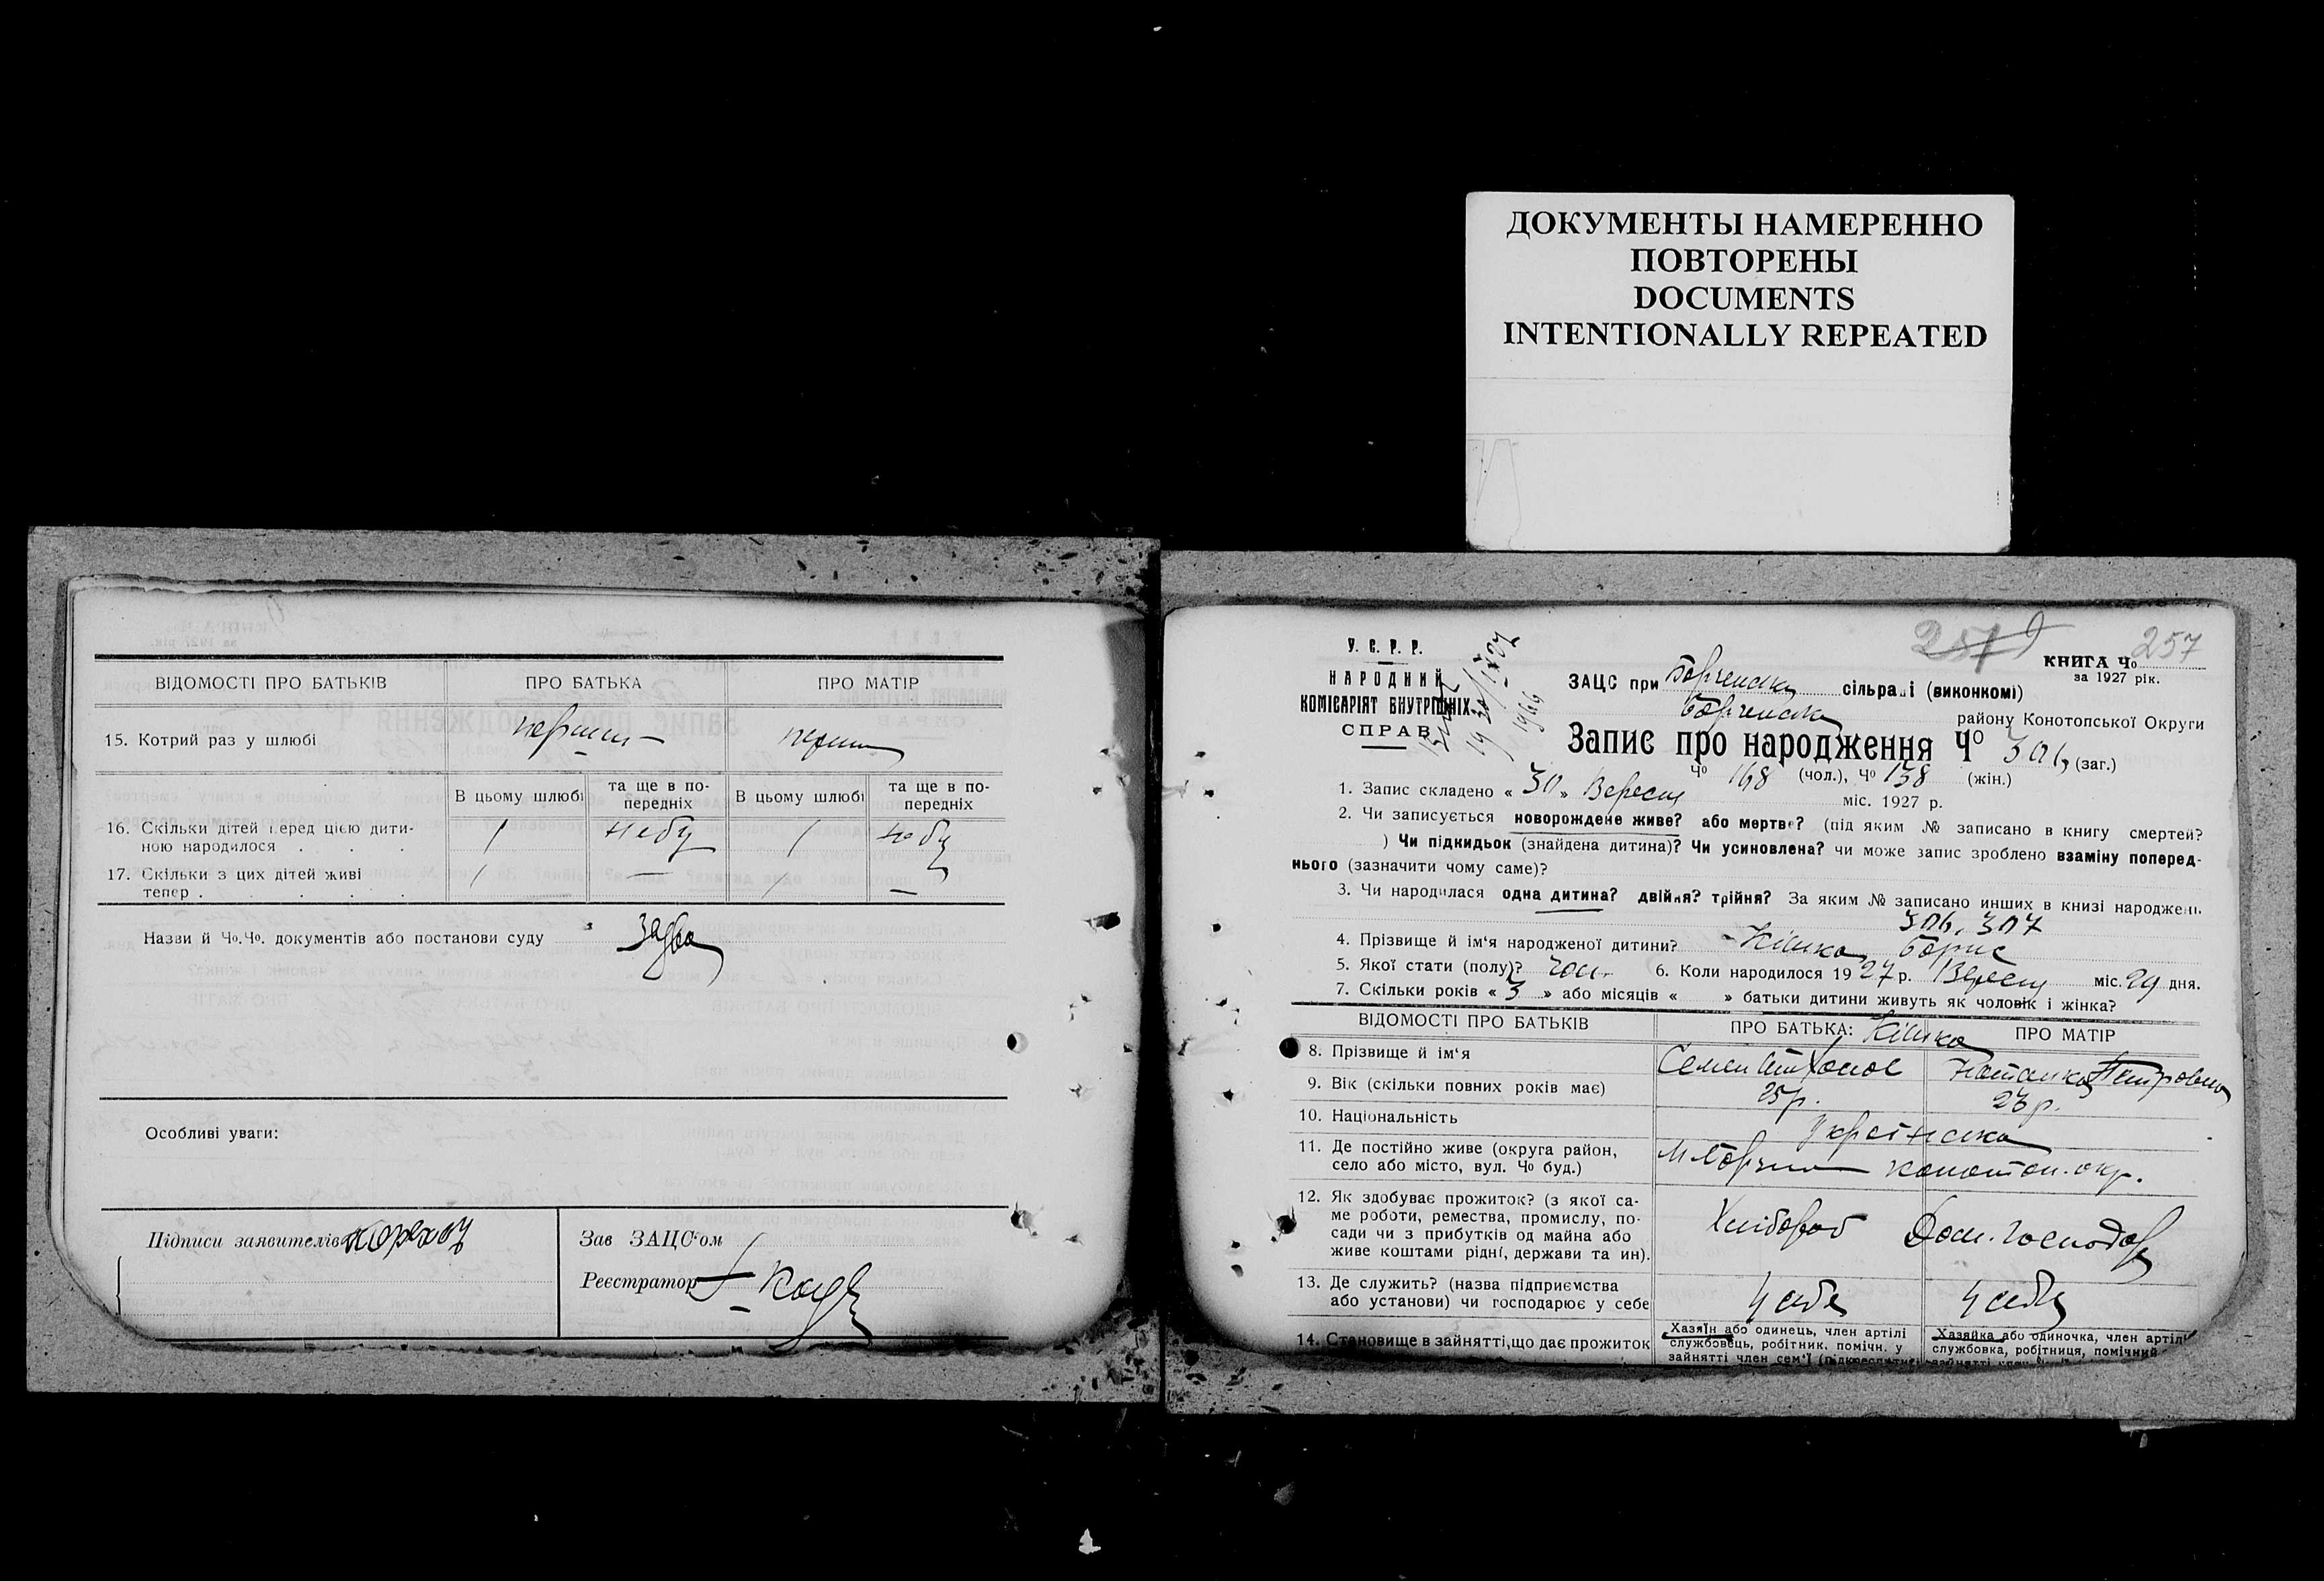 ДОКУМЕНТЫ НАМЕРЕННО
ПОВТОРЕНЫ
DOCUMENTS
INTENTIONALLY REPEATED
ВІДОМОСТІ ПРО БАТЬКІВ ПРО БАТЬКА ПРО МАТІР
15. Котрий раз у шлюбі
В цьому шлюбі та ще в по-передніх В цьому шлюбі та ще в по-передніх
16. Скільки дітей перед цією дити-
ною народилося . . . 1 небу 1 небу
17. Скільки з цих дітей живі
тепер . . . . . 1 — 1 —
Назви й Чо.Чо. документів або постанови суду
Особливі уваги:
Підписи заявителів
Зав ЗАЦС'ом
Реєстратор
257
КНИГА Чо 257
за 1927 рік.
У. С. Р. Р.
НАРОДНИЙ
КОМІСАРІЯТ ВНУТРІШНІХ
СПРАВ
ЗАЦС при сільраді (виконкомі)
району Конотопської Округи
Запис про народження Чо 306 (заг.)
Чо 168 (чол.), Чо 138 (жін.)
1. Запис складено « 30 » Вересня міс. 1927 р.
2. Чи записується новорождене живе? або мертве? (під яким № записано в книгу смертей?
) Чи підкидьок (знайдена дитина)? Чи усиновлена? чи може запис зроблено взаміну поперед-
нього (зазначити чому саме)?
3. Чи народилася одна дитина? двійня? трійня? За яким № записано инших в книзі народжень
306. 307
4. Прізвище й ім'я народженої дитини? Кішка Борис
5. Якої стати (полу)? чол. 6. Коли народилося 1927 р. Вересня міс. 29 дня.
7. Скільки років « 3 » або місяців « » батьки дитини живуть як чоловік і жінка?
ВІДОМОСТІ ПРО БАТЬКІВ ПРО БАТЬКА: Кішка ПРО МАТІР
8. Прізвище й ім'я Семен Петровна
9. Вік (скільки повних років має) 25 р. 23 р.
10. Національність Українська
11. Де постійно живе (округа район,
село або місто, вул. Чо буд.) м. Борзна конотоп. окр.
12. Як здобуває прожиток? (з якої са-
ме роботи, ремества, промислу, по-
сади чи з прибутків од майна або
живе коштами рідні, держави та ин). Хлібороб Дом. господар
13. Де служить? (назва підприємства
або установи) чи господарює у себе У себе У себе
14. Становище в зайнятті, що дає прожиток
Хазяїн або одинець, член артілі
службовець, робітник. помічн. у
зайнятті член сем'ї (підкреслити)
Хазяйка або одиночка, член артілі
службовка, робітниця, помічниця